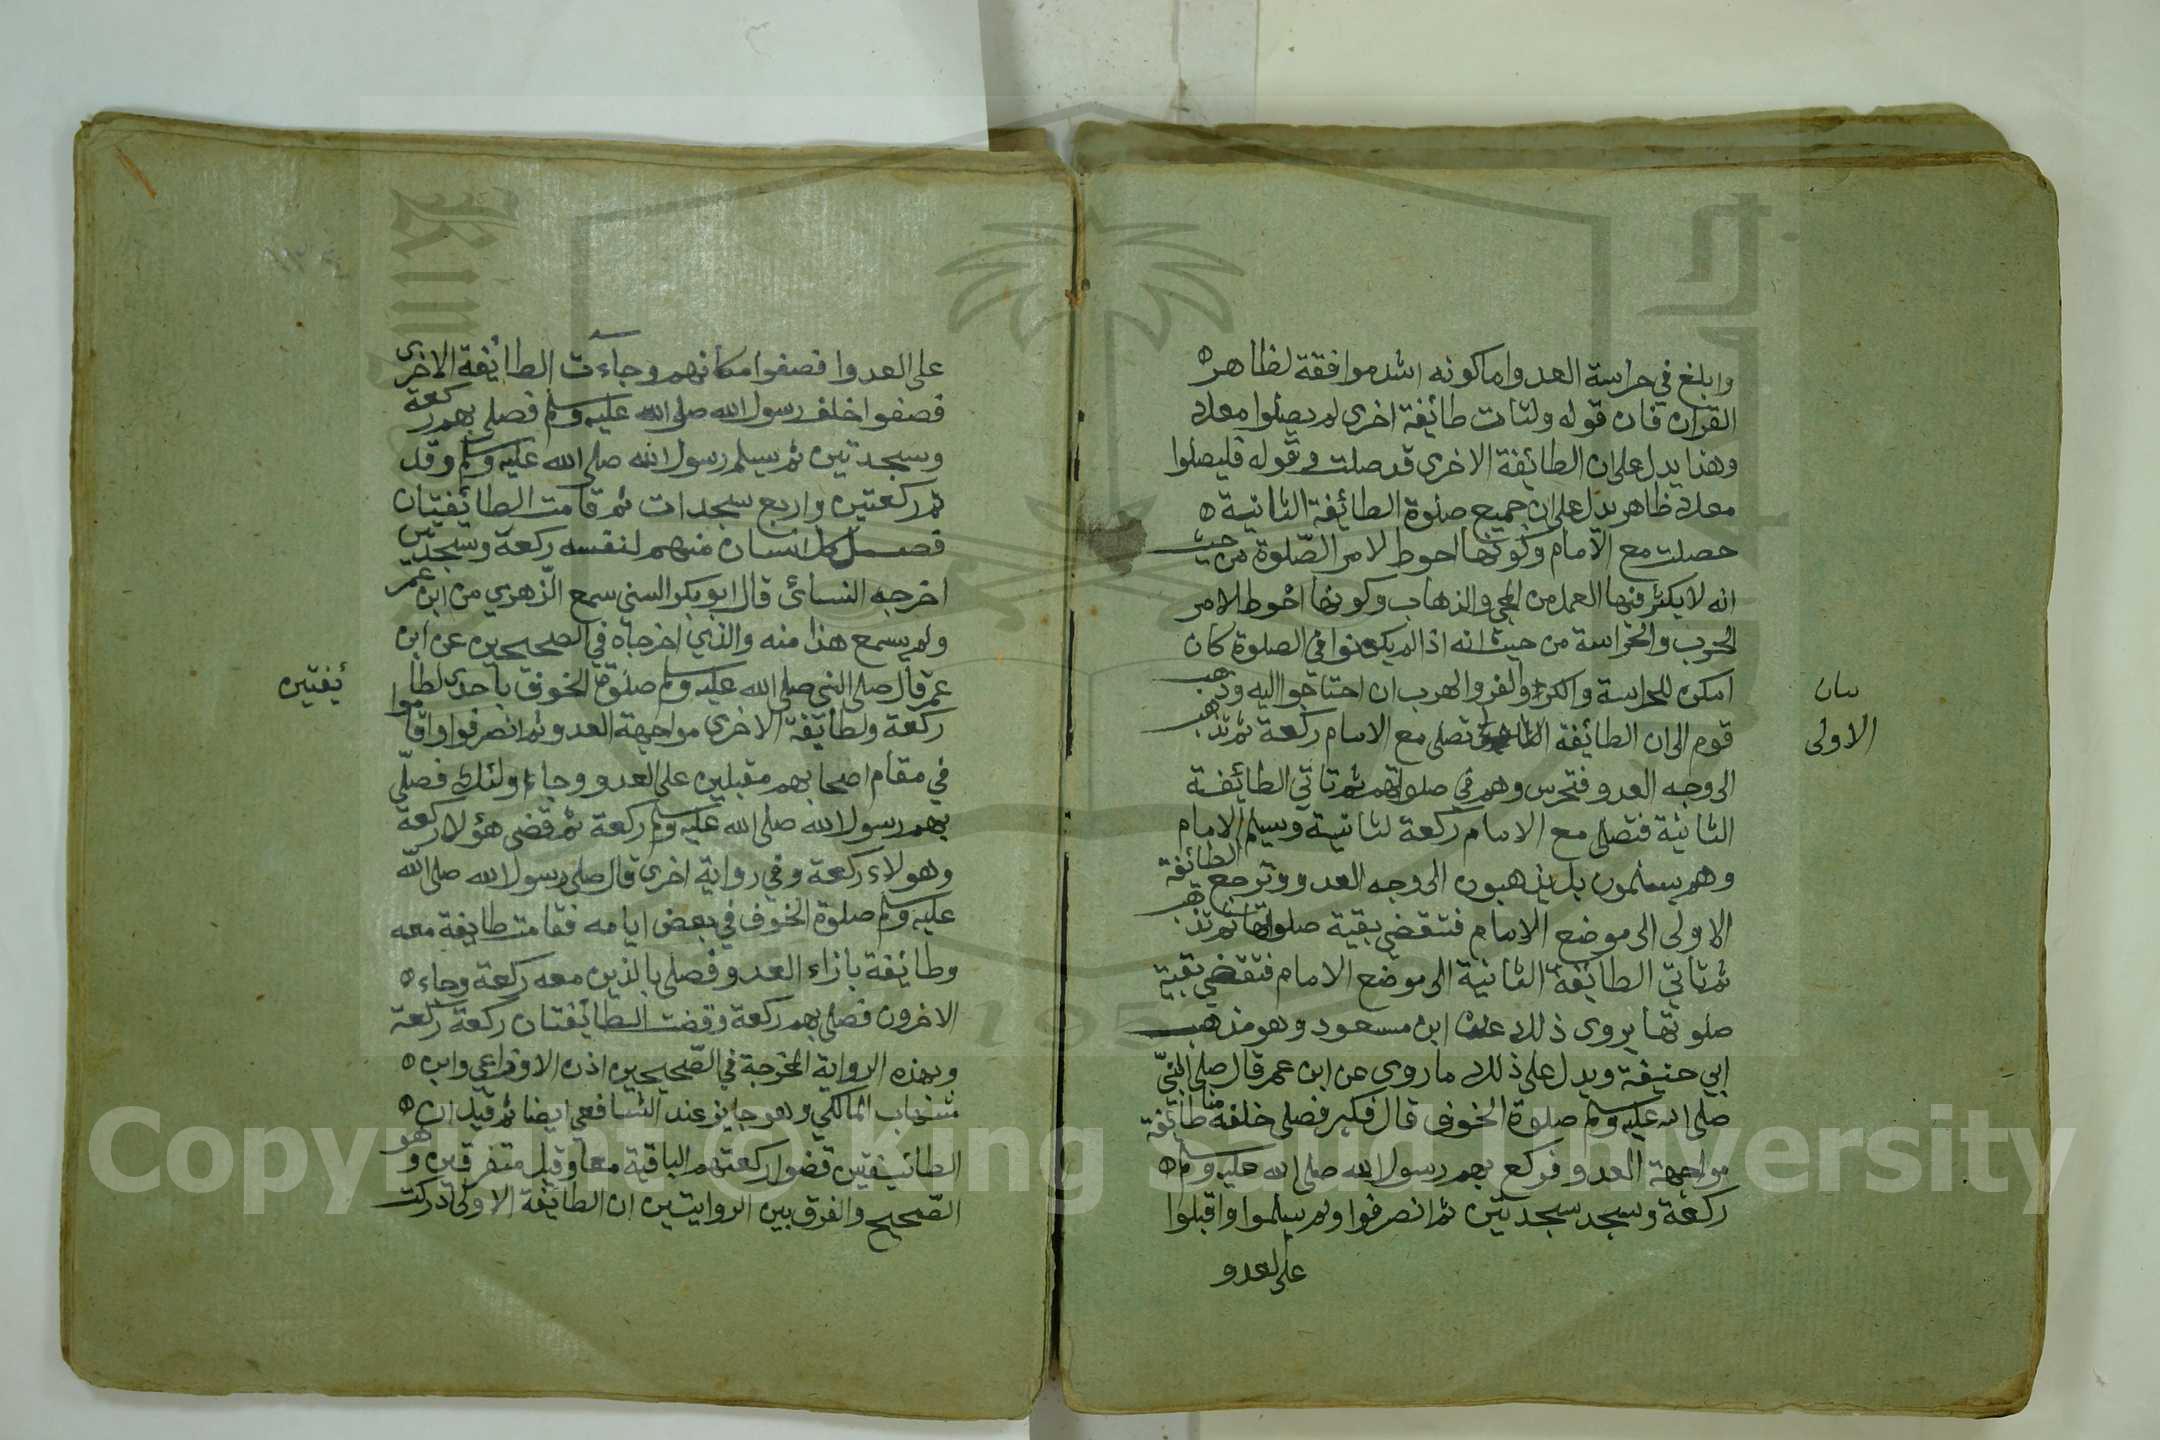 وابلغ في حراسة العدو واما كونه اشد موافقة لظاهر
القران فان قوله ولتات طائيفة اخرى لم يصلوا معك
وهذا يدل على ان الطائيفة الاخرى قد صلت وقوله فليصلوا
معك ظاهر يدل على ان جميع صلوة الطائيفة الثانية
حصلت مع الامام وكونها احوط لامر الصّلوة من حيث
انه لا يكثر فيها العمل من المجي والذهاب وكونها احوط لامر
الحرب والحراسة من حيث انه اذا لم يكونوا في الصلوة كان
امكن للحراسة والكر والفر والهرب ان احتاجوا اليه وذهب
قوم الى ان الطائيفة تصلي مع الامام ركعة ثم تذهب
الى وجه العدو فتحرس وهم في صلوتهم ثم تاتي الطائيفة
الثانية فتصلي مع الامام ركعة لثانية وسيلم الامام
وهم يسلمون بل يذهبون الى وجه العدو وترجع الطائفة
الاولى الى موضع الامام فتقضي بقية صلوتها ثم تذهب
ثم تاتي الطائيفة الثانية الى موضع الامام فتقضي بقية
صلوتها يروى ذلك عن ابن مسعود وهو مذهب
ابي حنيفة ويدل على ذلك ما روي عن ابن عمر قال صلى النبيّ
صلى الله عليه وسلم صلوة الخوف قال فكبر فصلى خلفه منا طائفة
مواجهة العدو فركع بهم رسول الله صلى الله عليه وسلم
ركعة وسجد سجدتين ثم انصرفوا ولم يسلموا واقبلوا
على لعدو
بيان
الاولى
على العدوا فصفوا مكانهم وجاءت الطائيفة الاخرى
فصفوا خلف رسول الله صلى الله عليه وسلم فصلى بهم ركعة
وسجدتين ثم سيلم رسول الله صلى الله عليه وسلم وقد
تم ركعتين واربع سجدات ثم قامت الطائيفتان
فصل كل انسان منهم لنفسه ركعة وسجدتين
اخرجه النسائى قال ابو بكر السني سمع الزّهري من ابن عمر
ولم يسمع هذا منه والذي اخرجاه في الصحيحين عن ابن
عمر قال صلى النبي صلى الله عليه وسلم صلوة الخوف باحدى لطا
ئفتين
ركعة ولطائيفة الاخرى مواجهة العدو ثم انصرفوا واقاموا
في مقام اصحابهم مقبلين على العدو وجاء اولئك فصلّى
بهم رسول الله صلى الله عليه وسلم ركعة ثم قضى هؤلا ركعة
وهولاء ركعة وفي رواية اخرى قال صلى رسول الله صلى الله
عليه وسلم صلوة الخوف في بعض ايامه فقامت طايفة معه
وطائيفة بازاء العدو فصلى بالذين معه ركعة وجاء
الاخرون فصلى بهم ركعة وقضت الطائيفتان ركعة ركعة
وبهذه الرواية المخرجة في الصّحيحين اذن الاوزاعي وابن
المالكي وهو جايز عند الشافعي ايضا ثم قيل ان
الطائيفتين قضوا ركعتهم الباقية معا وقيل متفرقين وهو
الصّحيح والفرق بين الروايتين ان الطائيفة الاولى ادركت
Copyright © King Saud University